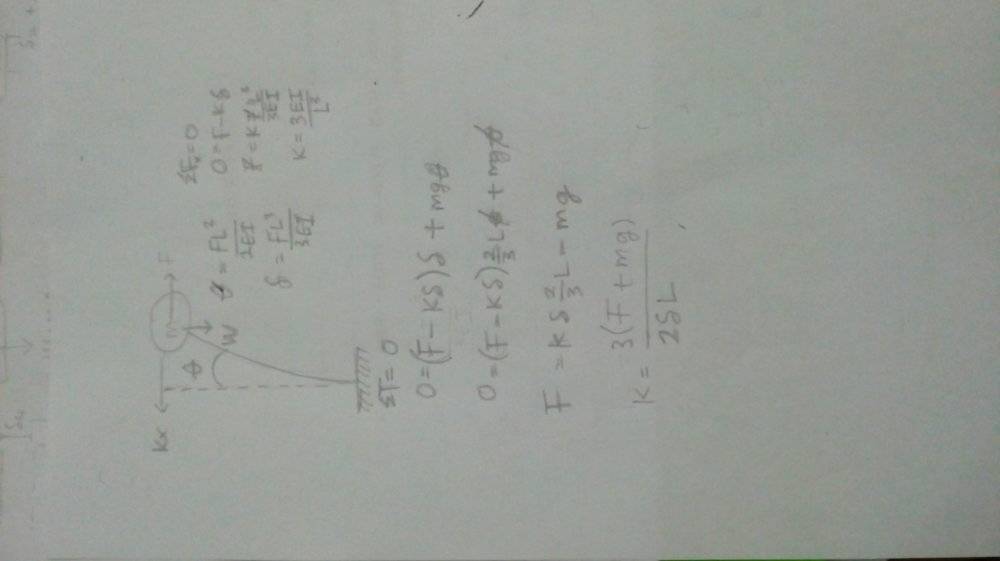 Kx
m
F
θ
W
θ = FL²/2EI
δ = FL³/3EI
ΣFₓ=0
0 = F-Kδ
F = K FL³/3EI
K = 3EI/L³
ΣT = 0
0 = (F-Kδ)δ + mgθ
0 = (F-Kδ)2/3Lθ + mgθ
F = Kδ2/3L - mg
K = 3(F+mg)/2δL